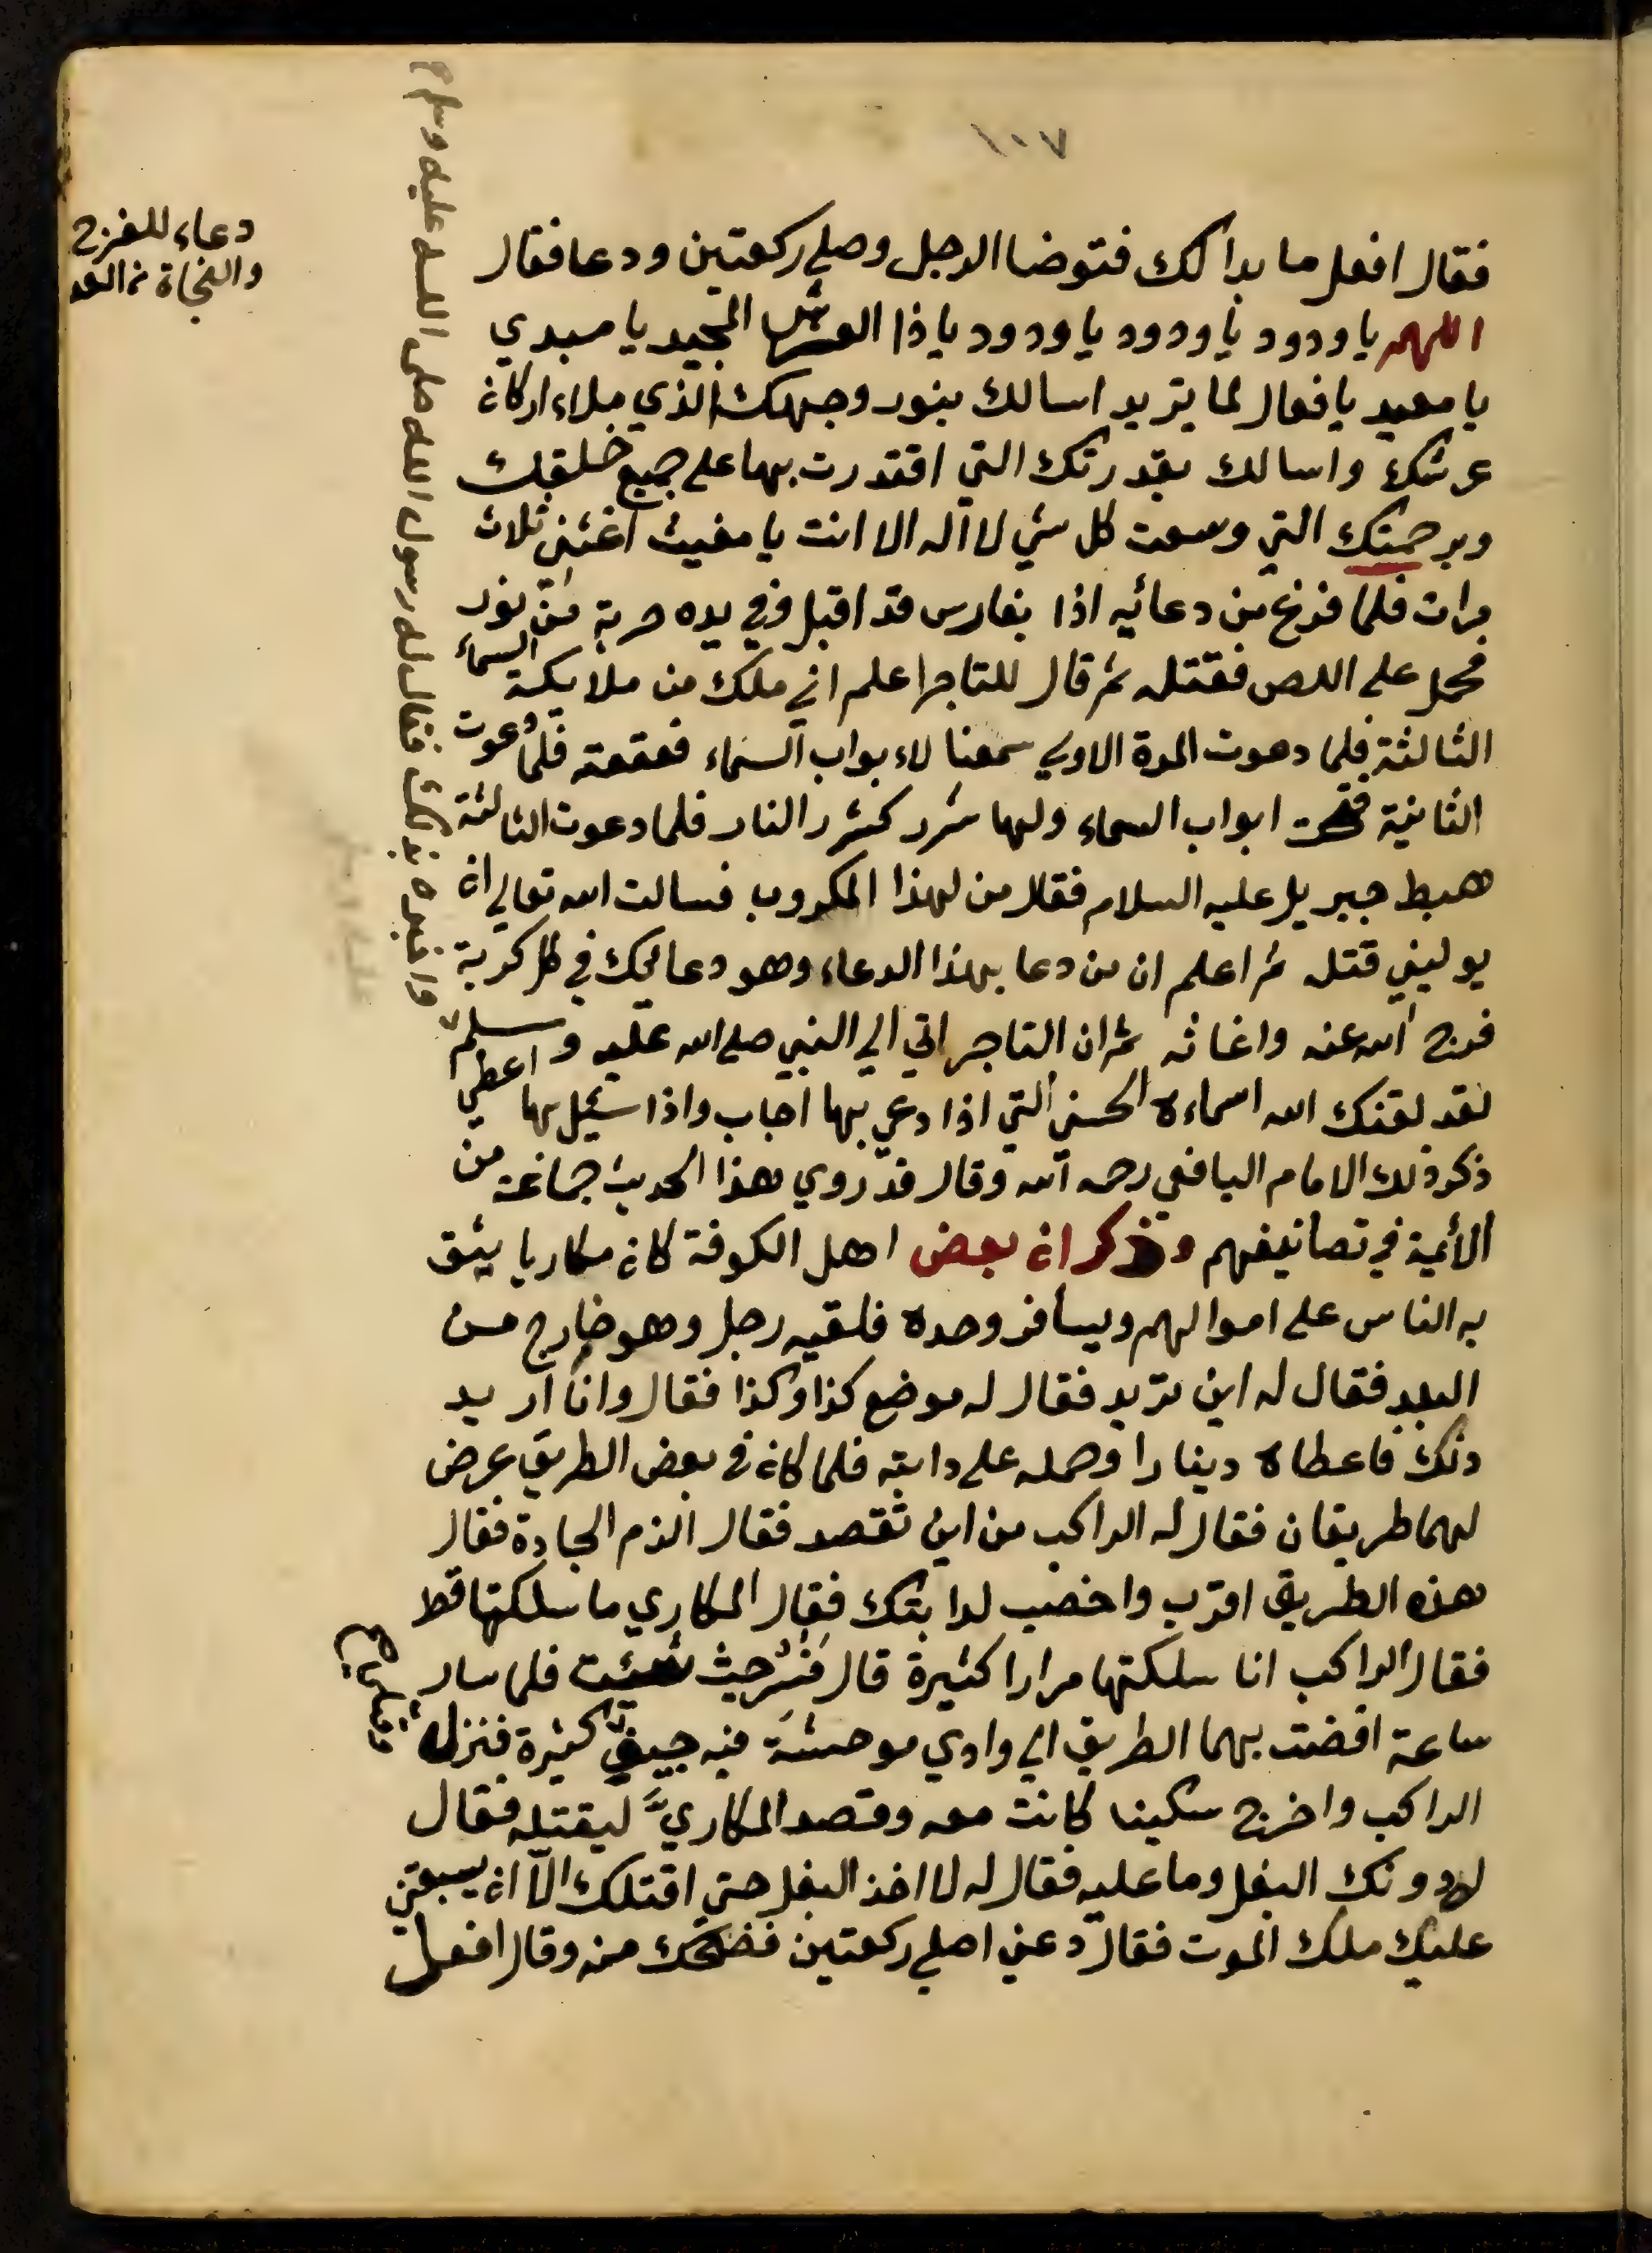 ١٠٧
دعاء للفرج
والنجاة من العدو
فقال افعل ما بدا لك فتوضا الرجل وصلي ركعتين ودعا فقال
اللهم يا ودود يا ودود يا ودود يا ذا العرش المجيد يا مبدي
يا معيد يا فعال لما يريد اسالك بنور وجهك الذي ملاء اركان
عرشك واسالك بقدرتك التي اقتدرت بها علي جميع خلقك
وبرحمتك التي وسعت كل شي لا اله الا انت يا مغيث اغثني ثلاث
مرات فلما فرغ من دعائيه اذا بفارس قد اقبل وفي يده حربة من نور
فحمل علي اللص فقتله ثم قال للتاجر اعلم اني ملك من ملايكة السماء
الثالثة فلما دعوت المرة الاولي سمعنا لاءبواب السماء قعقعة فلما دعوت
الثانية فتحت ابواب السماء ولها شرر كشرر النار فلما دعوت الثالثة
هبط جبريل عليه السلام فقال من لهذا المكروب فسالت الله تعالي ان
يوليني قتله ثم اعلم ان من دعا بهذا الدعاء وهو دعائك في كل كربة
فرج الله عنه واغاثه ثم ان التاجر اتي الي النبي صلي الله عليه وسلم
واخبره بذلك فقال له رسول الله صلى الله عليه وسلم
لقد لقنك الله اسماءه الحسني التي اذا دعي بها اجاب واذا سئيل بها اعطي
ذكر ذلك الامام اليافعي رحمه الله وقال قد روي هذا الحديث جماعة من
الأئمية في تصانيفهم وذكر ان بعض اهل الكوفة كان مكاريا يثق
به الناس علي اموالهم ويسافر وحده فلقيه رجل وهو خارج من
البلد فقال له اين تريد فقال له موضع كذا وكذا فقال وانا اريد
ذلك فاعطاه دينارا وحمله علي دابته فلما كان في بعض الطريق عرض
لهما طريقان فقال له الراكب من اين تقصد فقال الزم الجادة فقال
هذه الطريق اقرب واخصب لدابتك فقال المكاري ما سلكتها قط
فقال الراكب انا سلكتها مرارا كثيرة قال فسر حيث شئت فلما سار
ساعة افضت بهما الطريق الي وادي موحشة فيه جيف كثيرة فنزل
الراكب واخرج سكينا كانت معه وقصد المكاري ليقتله فقال
له دونك البغل وما عليه فقال له لا اخذ البغل حتي اقتلك الا ان يسبقني
عليك ملك الموت فقال دعني اصلي ركعتين فضحك منه وقال افعل